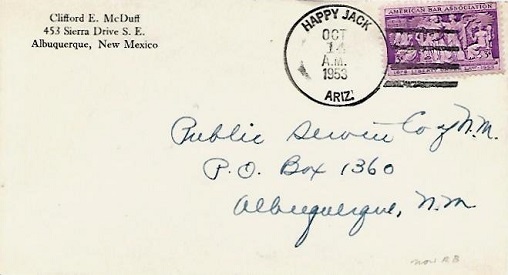 Clifford E. McDuff
453 Sierra Drive S. E.
Albuquerque, New Mexico
HAPPY JACK
OCT
14
A.M.
1953
ARIZ.
AMERICAN BAR ASSOCIATION
Public Service Co of N.M.
P.O. Box 1360
Albuquerque, N.M